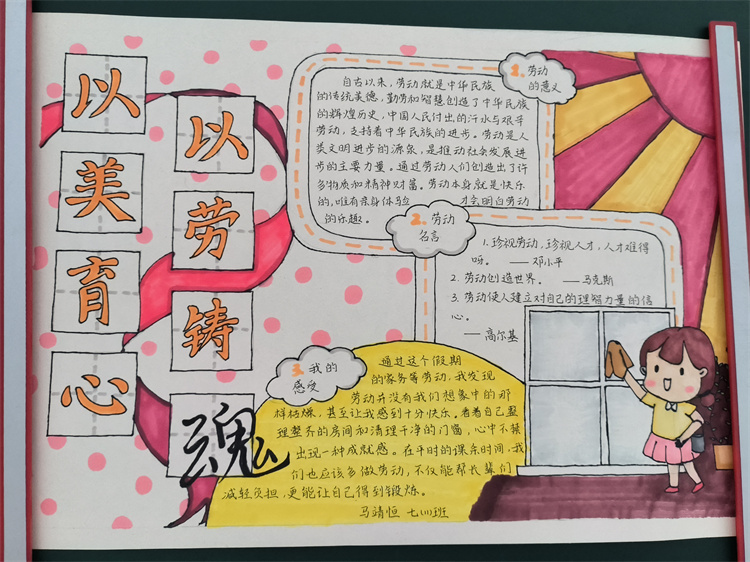 以美育心
以劳铸魂
1. 劳动
的意义
自古以来，劳动就是中华民族
的传统美德，勤劳和智慧创造了中华民族
的辉煌历史，中国人民付出的汗水与艰辛
劳动，支持着中华民族的进步。劳动是人
类文明进步的源泉，是推动社会发展进
步的主要力量。通过劳动人们创造出了许
多物质和精神财富。劳动本身就是快乐
的，唯有亲身体验 才会明白劳动
的乐趣。
2. 劳动
名言
1. 珍视劳动，珍视人才，人才难得
呀。 ——邓小平
2. 劳动创造世界。 ——马克斯
3. 劳动使人建立对自己的理智力量的信
心。
——高尔基
3. 我的
感受
通过这个假期
的家务等劳动，我发现
劳动并没有我们想象中的那
样枯燥，甚至让我感到十分快乐。看着自己整
理整齐的房间和清理干净的门窗，心中不禁
出现一种成就感。在平时的课余时间，我
们也应该多做劳动，不仅能帮长辈们
减轻负担，更能让自己得到锻炼。
马靖恒 七（11）班